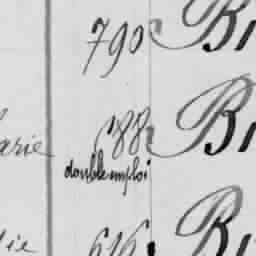 790 Br
arie 688 Br
double emploi
ie 616. Br